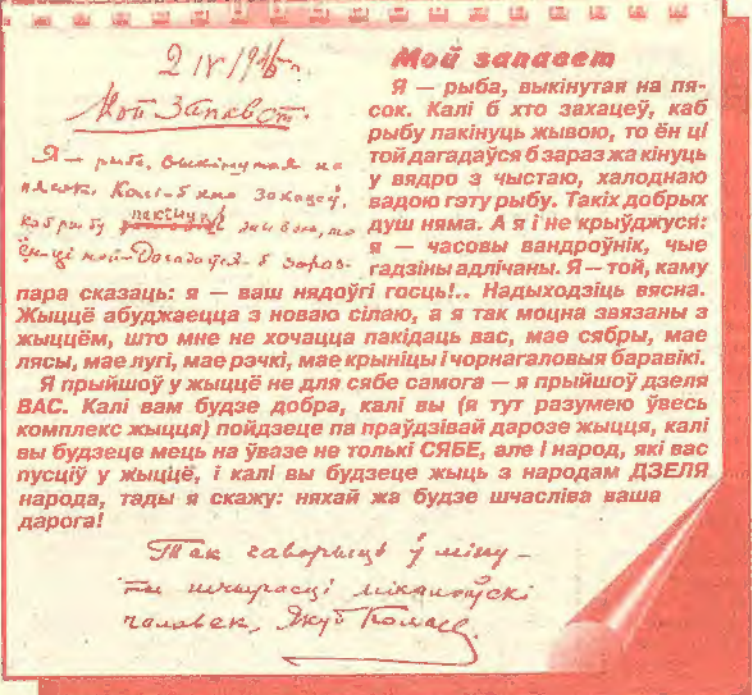 2 IV
Мой Запавет.
Я — рыба, выкінутая на
пясок. Калі-б хто захацеў,
каб рыбу пакінуць жывою, то
ён ці той дагадаўся-б зараз-
Мой запавет
Я — рыба, выкінутая на пя-
сок. Калі б хто захацеў, каб
рыбу пакінуць жывою, то ён ці
той дагадаўся б зараз жа кінуць
у вядро з чыстаю, халоднаю
вадою гэту рыбу. Такіх добрых
душ няма. А я і не крыўджуся:
я — часовы вандроўнік, чые
гадзіны адлічаны. Я — той, каму
пара сказаць: я — ваш нядоўгі госць!.. Надыходзіць вясна.
Жыццё абуджаецца з новаю сілаю, а я так моцна звязаны з
жыццём, што мне не хочацца пакідаць вас, мае сябры, мае
лясы, мае лугі, мае рэчкі, мае крыніцы і чорнагаловыя баравікі.
Я прыйшоў у жыццё не для сябе самога — я прыйшоў дзеля
ВАС. Калі вам будзе добра, калі вы (я тут разумею ўвесь
комплекс жыцця) пойдзеце па праўдзівай дарозе жыцця, калі
вы будзеце мець на ўвазе не толькі СЯБЕ, але і народ, які вас
пусціў у жыццё, і калі вы будзеце жыць з народам ДЗЕЛЯ
народа, тады я скажу: няхай жа будзе шчасліва ваша
дарога!
Так гаворыць ў міну-
ты шчырасці
чалавек, Якуб Колас.